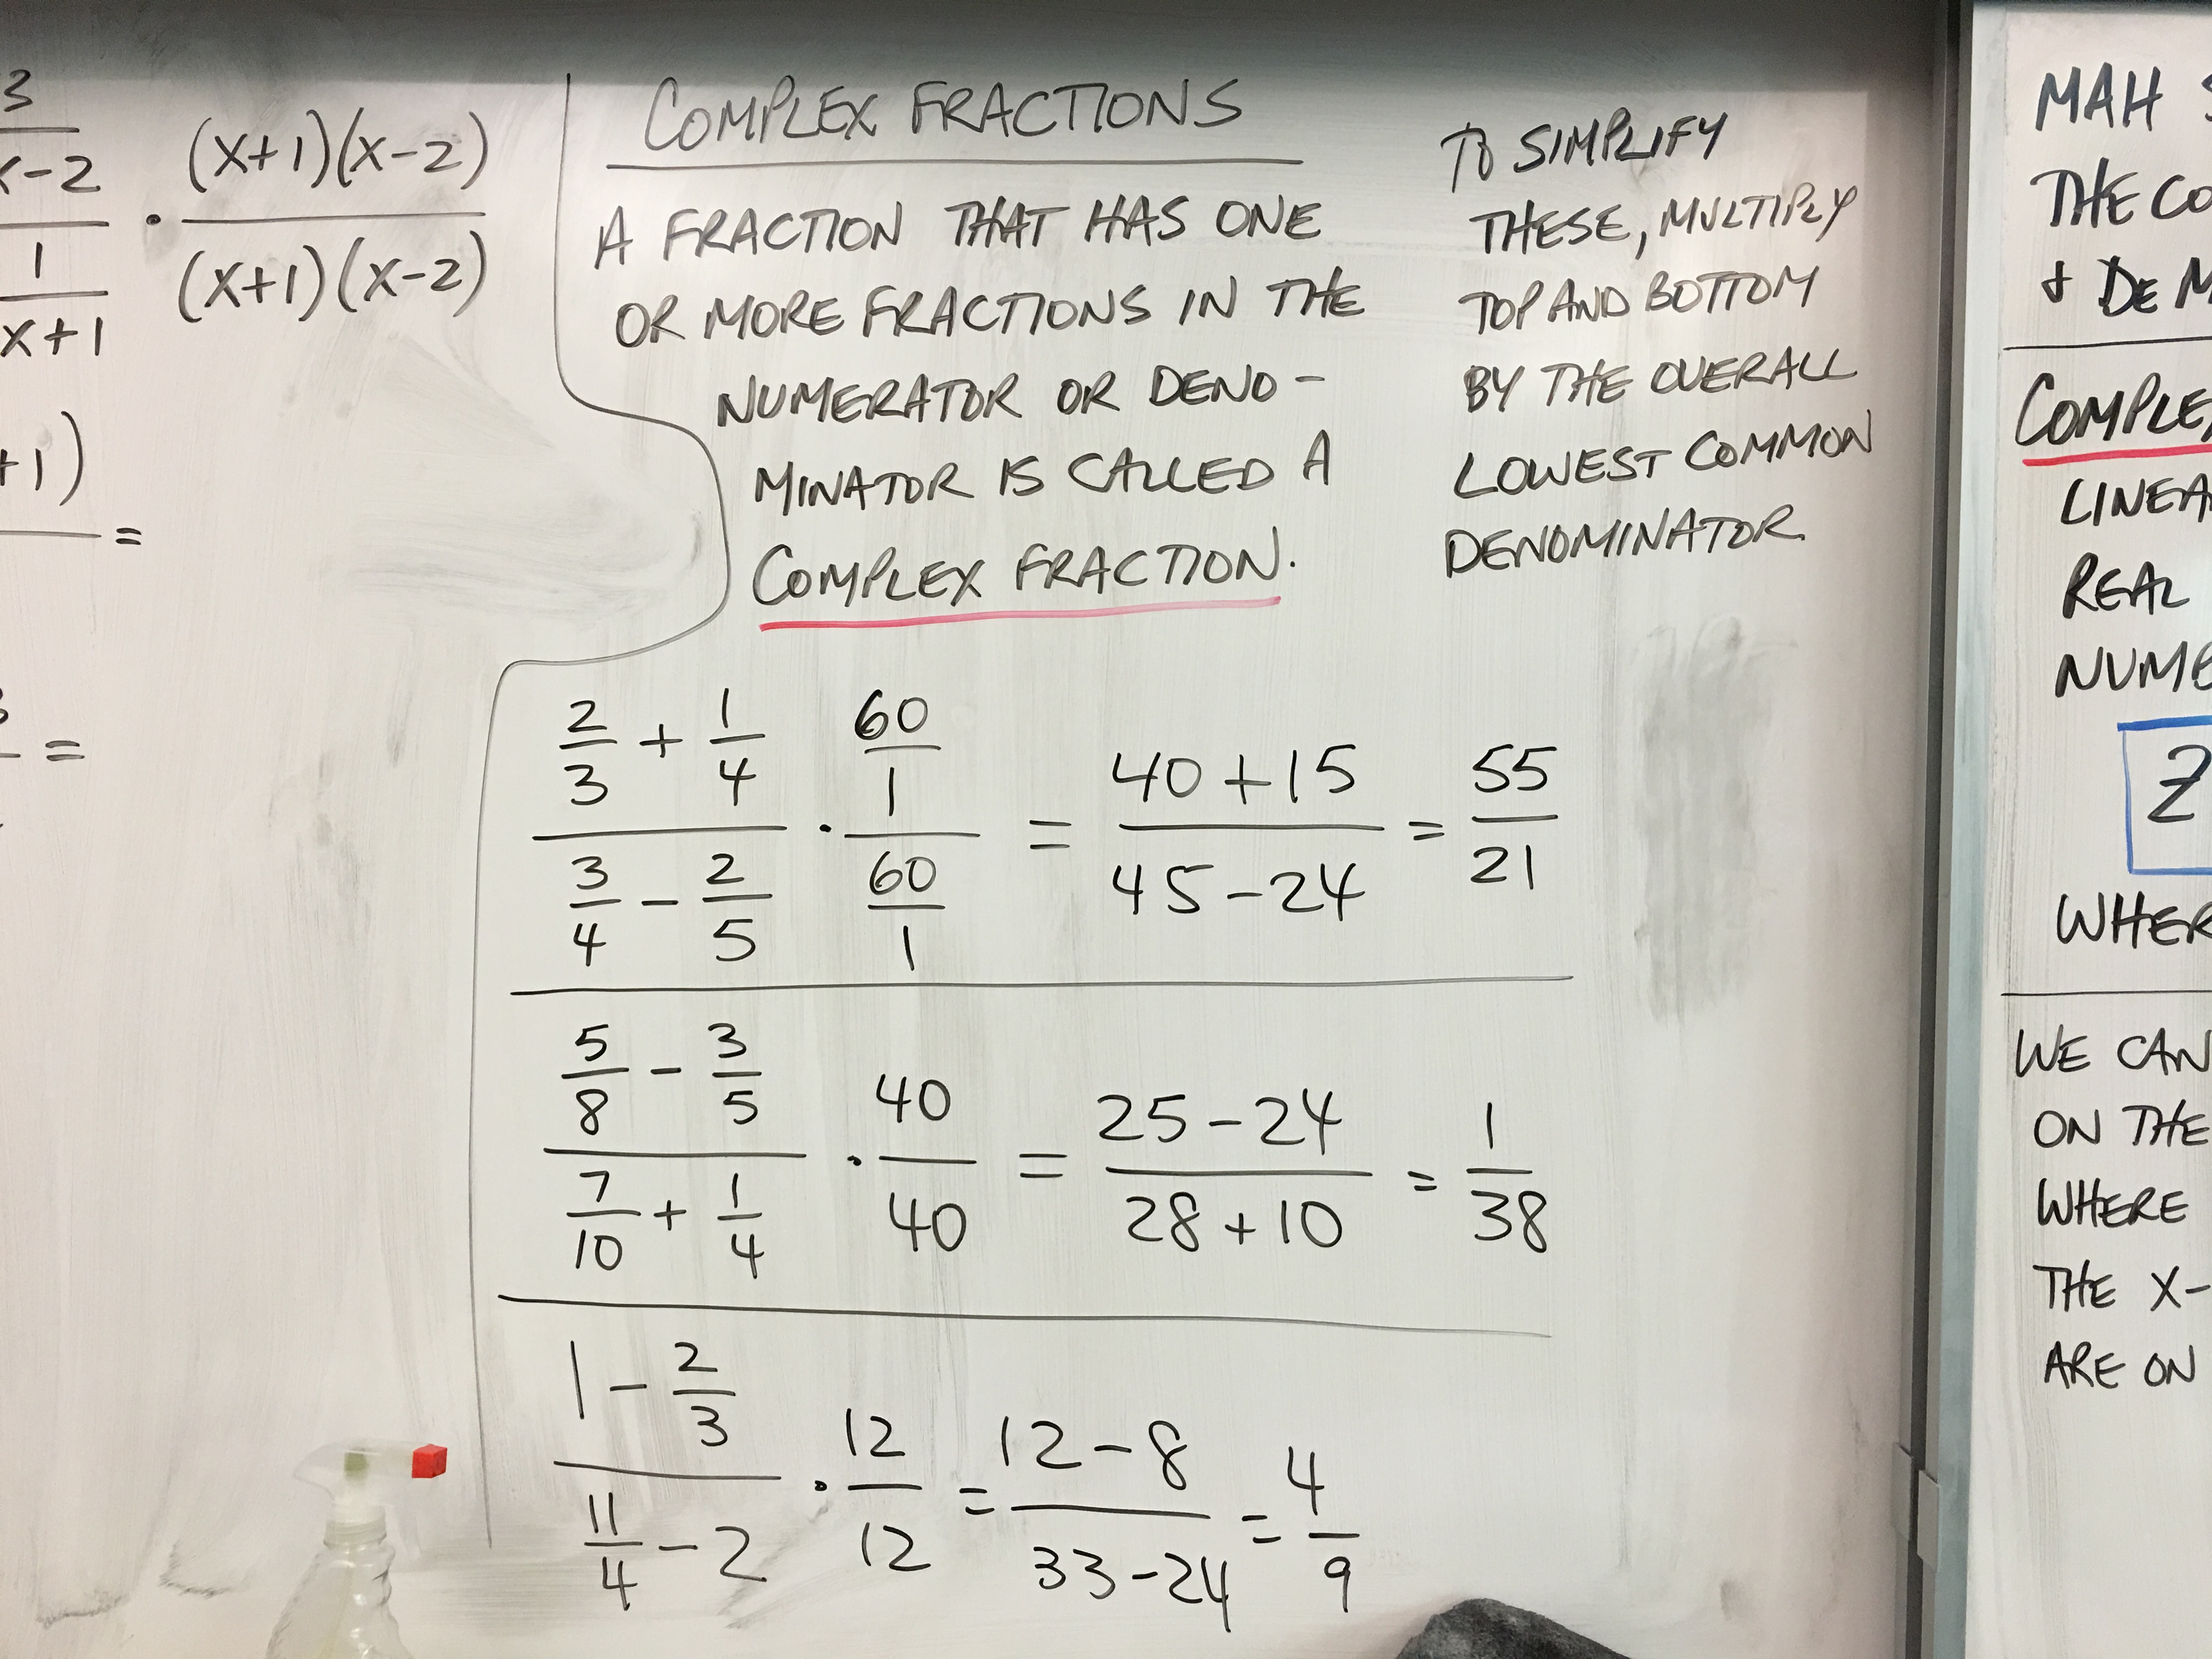 3
x-2
1
x+1
· (x+1)(x-2)
(x+1)(x-2)
+1)
=
=
COMPLEX FRACTIONS
A FRACTION THAT HAS ONE
OR MORE FRACTIONS IN THE
NUMERATOR OR DENO-
MINATOR IS CALLED A
COMPLEX FRACTION.
TO SIMPLIFY
THESE, MULTIPLY
TOP AND BOTTOM
BY THE OVERALL
LOWEST COMMON
DENOMINATOR.
2/3 + 1/4 · 60/1 = 40+15 = 55
3/4 - 2/5 60/1 45-24 21
5/8 - 3/5 · 40 = 25-24 = 1
7/10 + 1/4 40 28+10 38
1 - 2/3 · 12 = 12-8 = 4
11/4 - 2 12 33-24 9
MAH
THE CO
+ DE M
COMPLEX
LINEA
REAL
NUMB
Z
WHER
WE CAN
ON THE
WHERE
THE X-
ARE ON